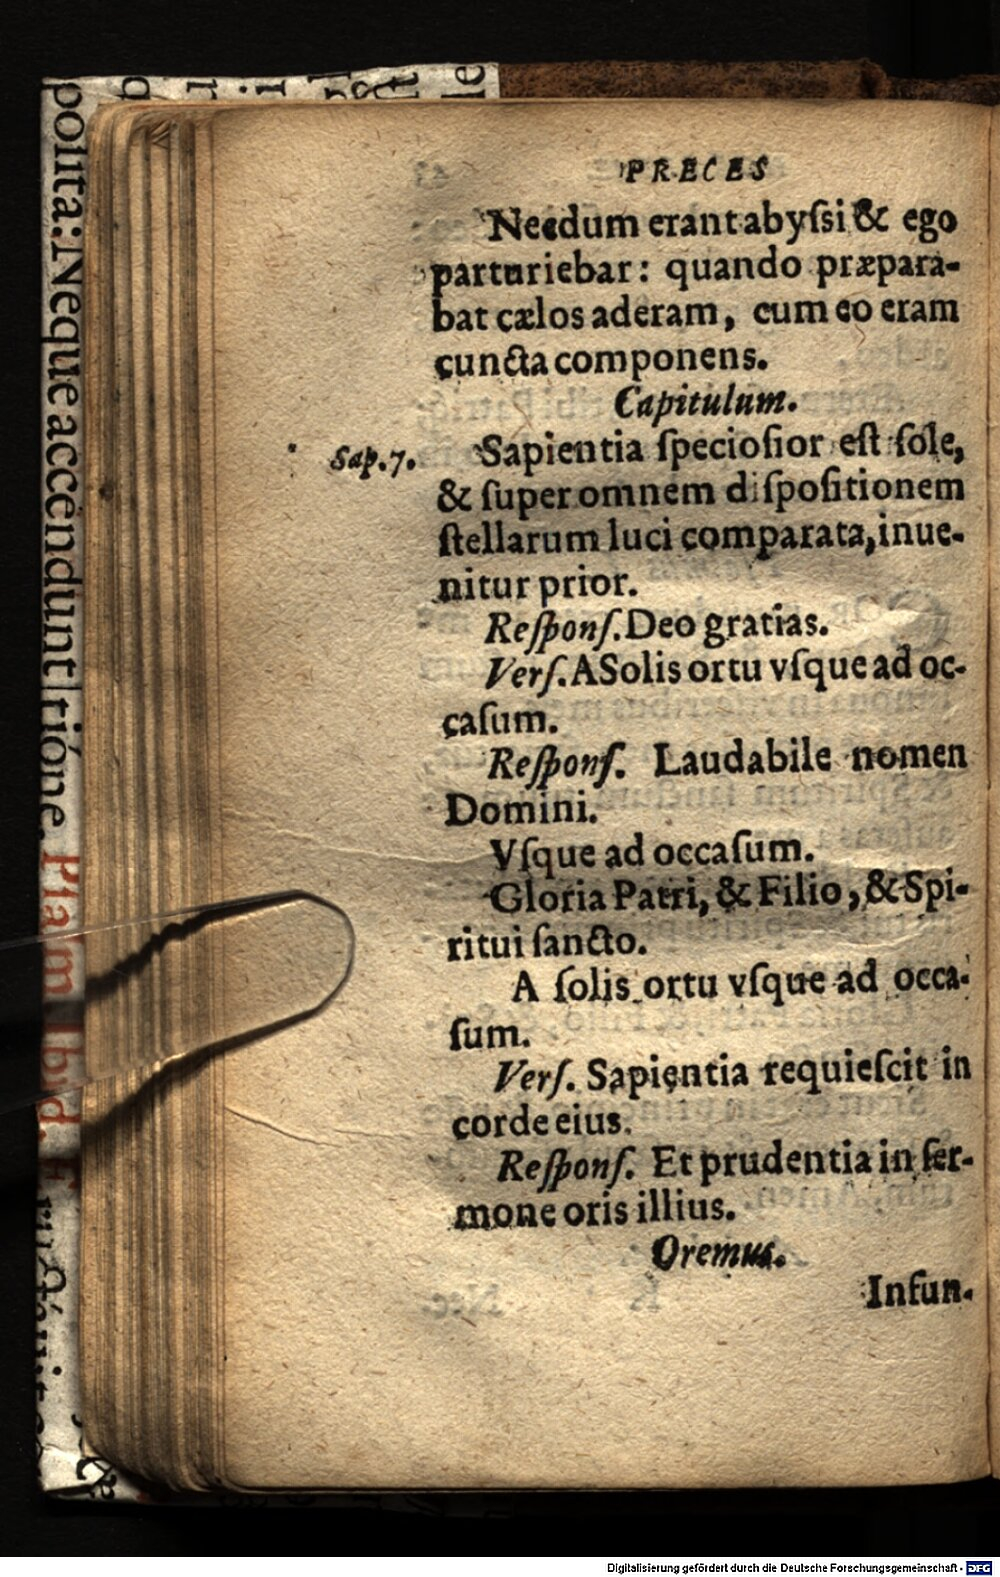 PRECES
Necdum erant abyſsi & ego
parturiebar: quando præpara-
bat cælos aderam, cum eo eram
cuncta componens.
Capitulum.
Sap. 7. Sapientia ſpecioſior eſt ſole,
& ſuper omnem diſpoſitionem
ſtellarum luci comparata, inue-
nitur prior.
Reſponſ. Deo gratias.
Verſ. A Solis ortu vſque ad oc-
caſum.
Reſponſ. Laudabile nomen
Domini.
Vſque ad occaſum.
Gloria Patri, & Filio, & Spi-
ritui ſancto.
A ſolis ortu vſque ad occa-
ſum.
Verſ. Sapientia requieſcit in
corde eius.
Reſponſ. Et prudentia in ſer-
mone oris illius.
Oremus.
Infun-
polita: Neque accéndunt
tióne. Pſalm Ibid.
Digitalisierung gefördert durch die Deutsche Forschungsgemeinschaft - DFG